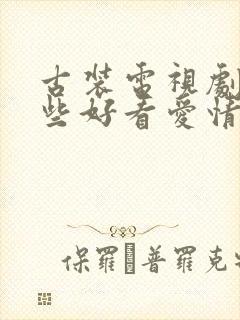 古裝電視劇
些好看愛情
保羅 普羅克